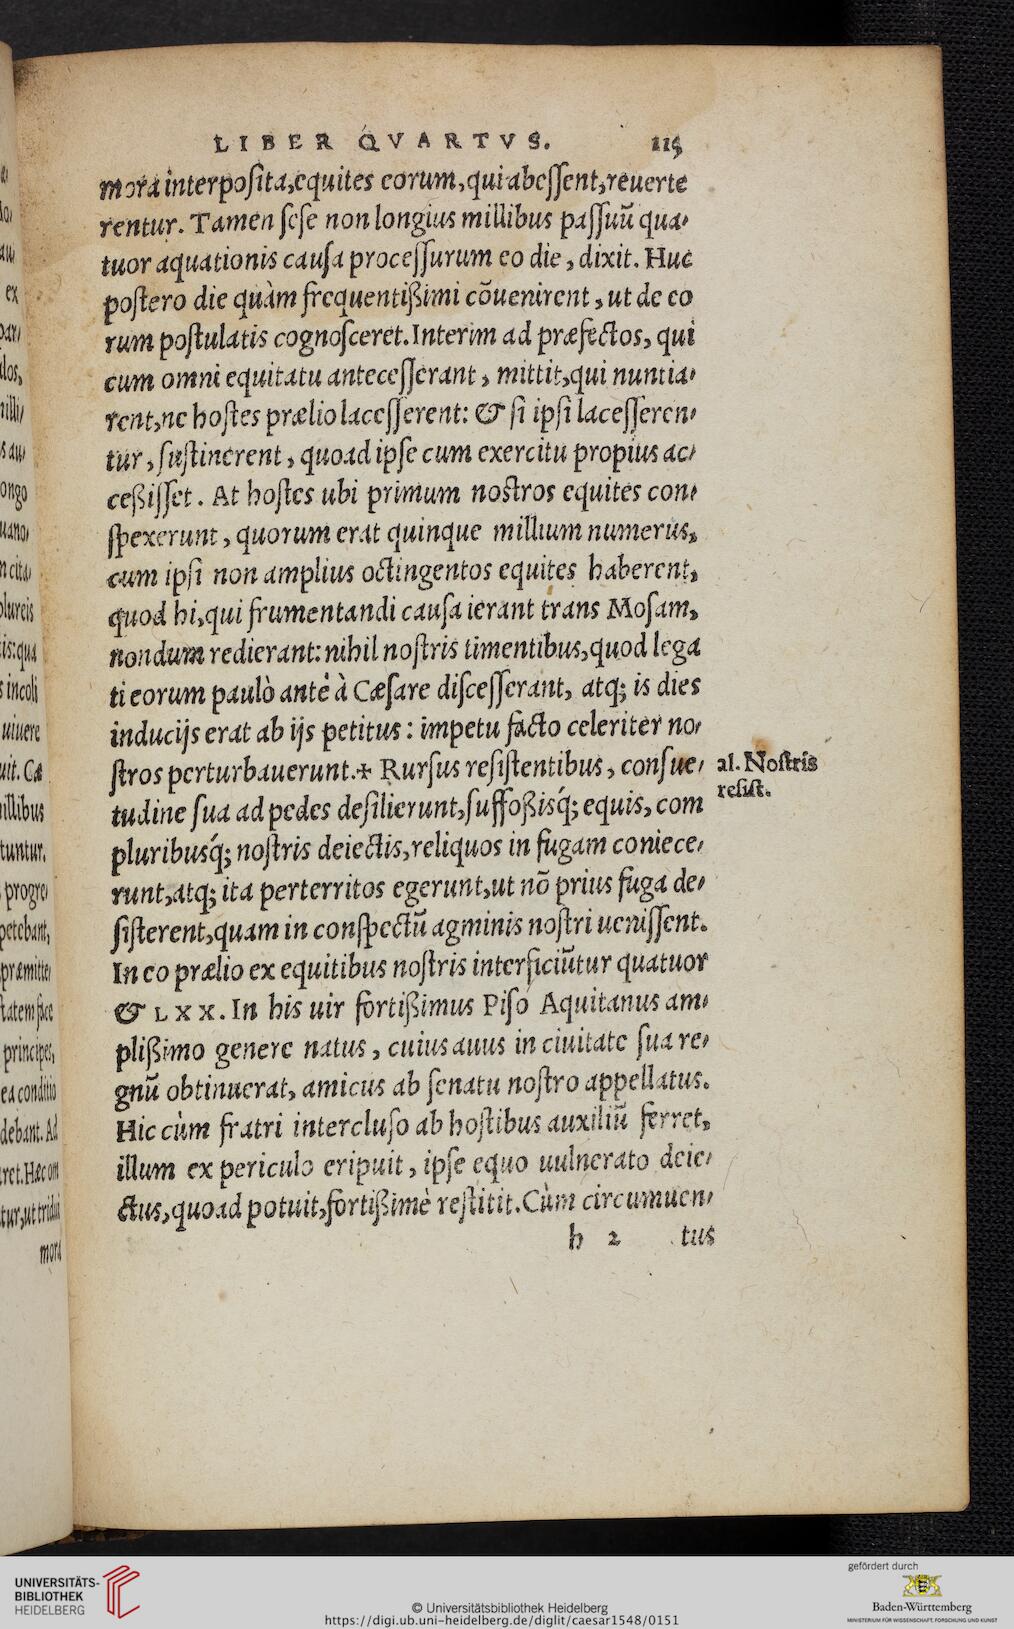 LIBER QVARTVS. 115
mora interposita, equites eorum, qui abessent, reuerte
rentur. Tamen sese non longius millibus passuũ qua-
tuor aquationis causa processurum eo die, dixit. Huc
postero die quàm frequentißimi cõuenirent, ut de eo
rum postulatis cognosceret. Interim ad præfectos, qui
cum omni equitatu antecesserant, mittit, qui nuntia-
rent, ne hostes prælio lacesserent: & si ipsi lacesseren-
tur, sustinerent, quoad ipse cum exercitu propius ac-
ceßisset. At hostes ubi primum nostros equites con-
spexerunt, quorum erat quinque millium numerus,
cum ipsi non amplius octingentos equites haberent,
quod hi, qui frumentandi causa ierant trans Mosam,
nondum redierant: nihil nostris timentibus, quod lega
ti eorum paulò antè à Cæsare discesserant, atq; is dies
inducijs erat ab ijs petitus: impetu facto celeriter no-
stros perturbauerunt.+ Rursus resistentibus, consue-
al. Nostris
resist.
tudine sua ad pedes desilierunt, suffoßisq́; equis, com
pluribusq́; nostris deiectis, reliquos in fugam coniece-
runt, atq; ita perterritos egerunt, ut nõ prius fuga de-
sisterent, quam in conspectũ agminis nostri uenissent.
In eo prælio ex equitibus nostris interficiũtur quatuor
& LXX. In his uir fortißimus Piso Aquitanus am-
plißimo genere natus, cuius auus in ciuitate sua re-
gnũ obtinuerat, amicus ab senatu nostro appellatus.
Hic cùm fratri intercluso ab hostibus auxiliũ ferret,
illum ex periculo eripuit, ipse equo uulnerato deie-
ctus, quoad potuit, fortißimè restitit. Cùm circumuen-
h 2 tus
ex
ongo
s incoli
uiuere
uit. Cæ
tuntur.
progre-
petebant,
præmitte-
principes,
ea conditio
debant. Ad
tur, ut tridui
mora
UNIVERSITÄTS-
BIBLIOTHEK
HEIDELBERG
© Universitätsbibliothek Heidelberg
https://digi.ub.uni-heidelberg.de/diglit/caesar1548/0151
gefördert durch
Baden-Württemberg
MINISTERIUM FÜR WISSENSCHAFT, FORSCHUNG UND KUNST